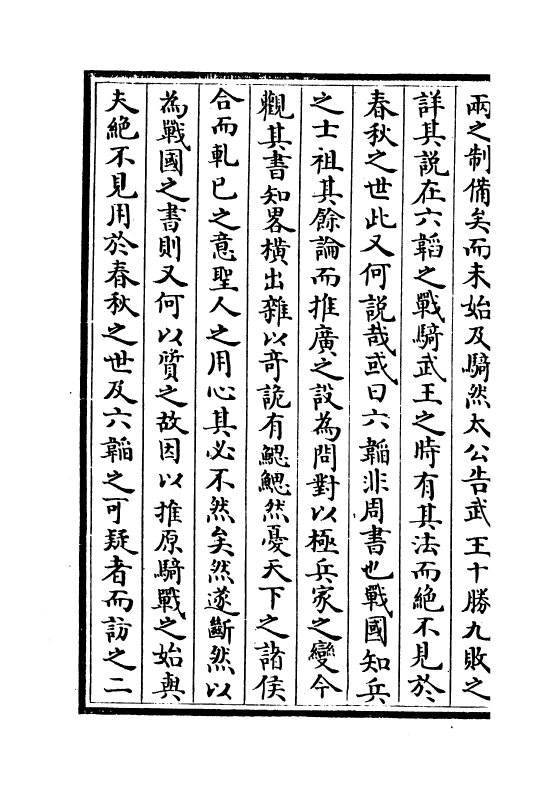 兩之制備矣而未始及騎然太公告武王十勝九敗之
詳其説在六韜之戰騎武王之時有其法而絶不見於
春秋之世此又何説哉或曰六韜非周書也戰國知兵
之士祖其餘論而推廣之設為問對以極兵家之變今
觀其書知畧橫出雜以奇詭有鰓鰓然憂天下之諸侯
合而軋已之意聖人之用心其必不然矣然遂斷然以
為戰國之書則又何以質之故因以推原騎戰之始與
夫絶不見用於春秋之世及六韜之可疑者而訪之二